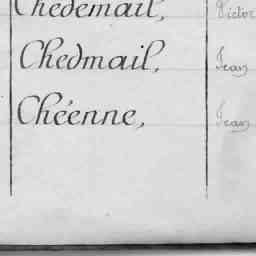 Chedemail, Victor
Chedmail, Jean
Chéenne, Jean